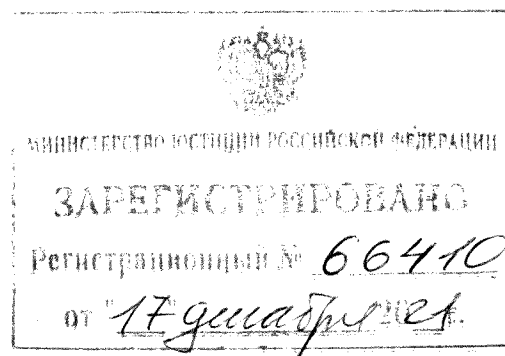 МИНИСТЕРСТВО ЮСТИЦИИ РОССИЙСКОЙ ФЕДЕРАЦИИ
ЗАРЕГИСТРИРОВАНО
Регистрационный № 66410
от "17" декабря 2021.